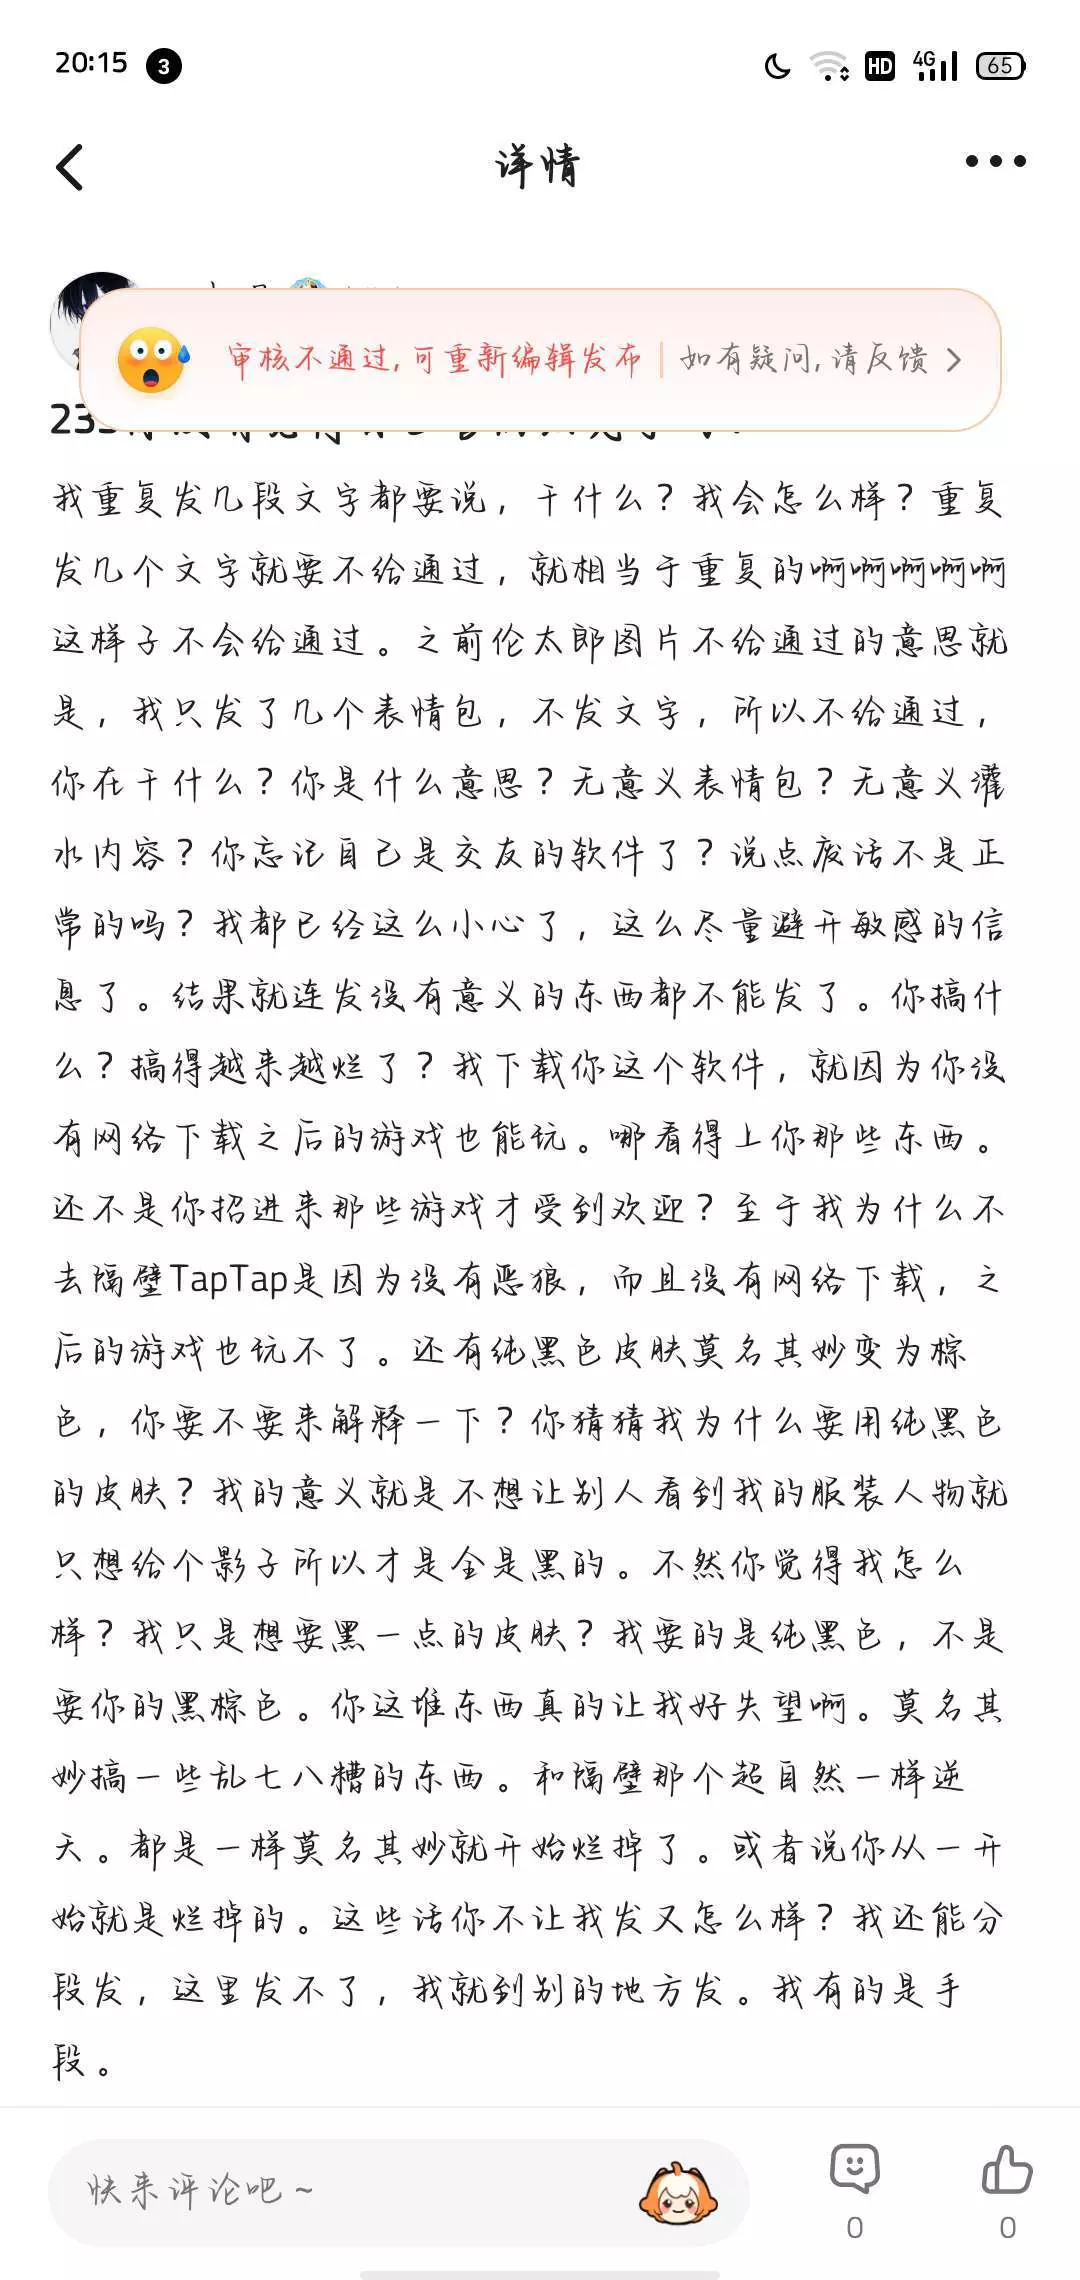 20:15
3
HD
4G
65
详情
审核不通过,可重新编辑发布
如有疑问,请反馈
233
我重复发几段文字都要说，干什么？我会怎么样？重复
发几个文字就要不给通过，就相当于重复的啊啊啊啊啊
这样子不会给通过。之前伦太郎图片不给通过的意思就
是，我只发了几个表情包，不发文字，所以不给通过，
你在干什么？你是什么意思？无意义表情包？无意义灌
水内容？你忘记自己是交友的软件了？说点废话不是正
常的吗？我都已经这么小心了，这么尽量避开敏感的信
息了。结果就连发没有意义的东西都不能发了。你搞什
么？搞得越来越烂了？我下载你这个软件，就因为你没
有网络下载之后的游戏也能玩。哪看得上你那些东西。
还不是你招进来那些游戏才受到欢迎？至于我为什么不
去隔壁TapTap是因为没有恶狼，而且没有网络下载，之
后的游戏也玩不了。还有纯黑色皮肤莫名其妙变为棕
色，你要不要来解释一下？你猜猜我为什么要用纯黑色
的皮肤？我的意义就是不想让别人看到我的服装人物就
只想给个影子所以才是全是黑的。不然你觉得我怎么
样？我只是想要黑一点的皮肤？我要的是纯黑色，不是
要你的黑棕色。你这堆东西真的让我好失望啊。莫名其
妙搞一些乱七八糟的东西。和隔壁那个超自然一样逆
天。都是一样莫名其妙就开始烂掉了。或者说你从一开
始就是烂掉的。这些话你不让我发又怎么样？我还能分
段发，这里发不了，我就到别的地方发。我有的是手
段。
快来评论吧~
0
0